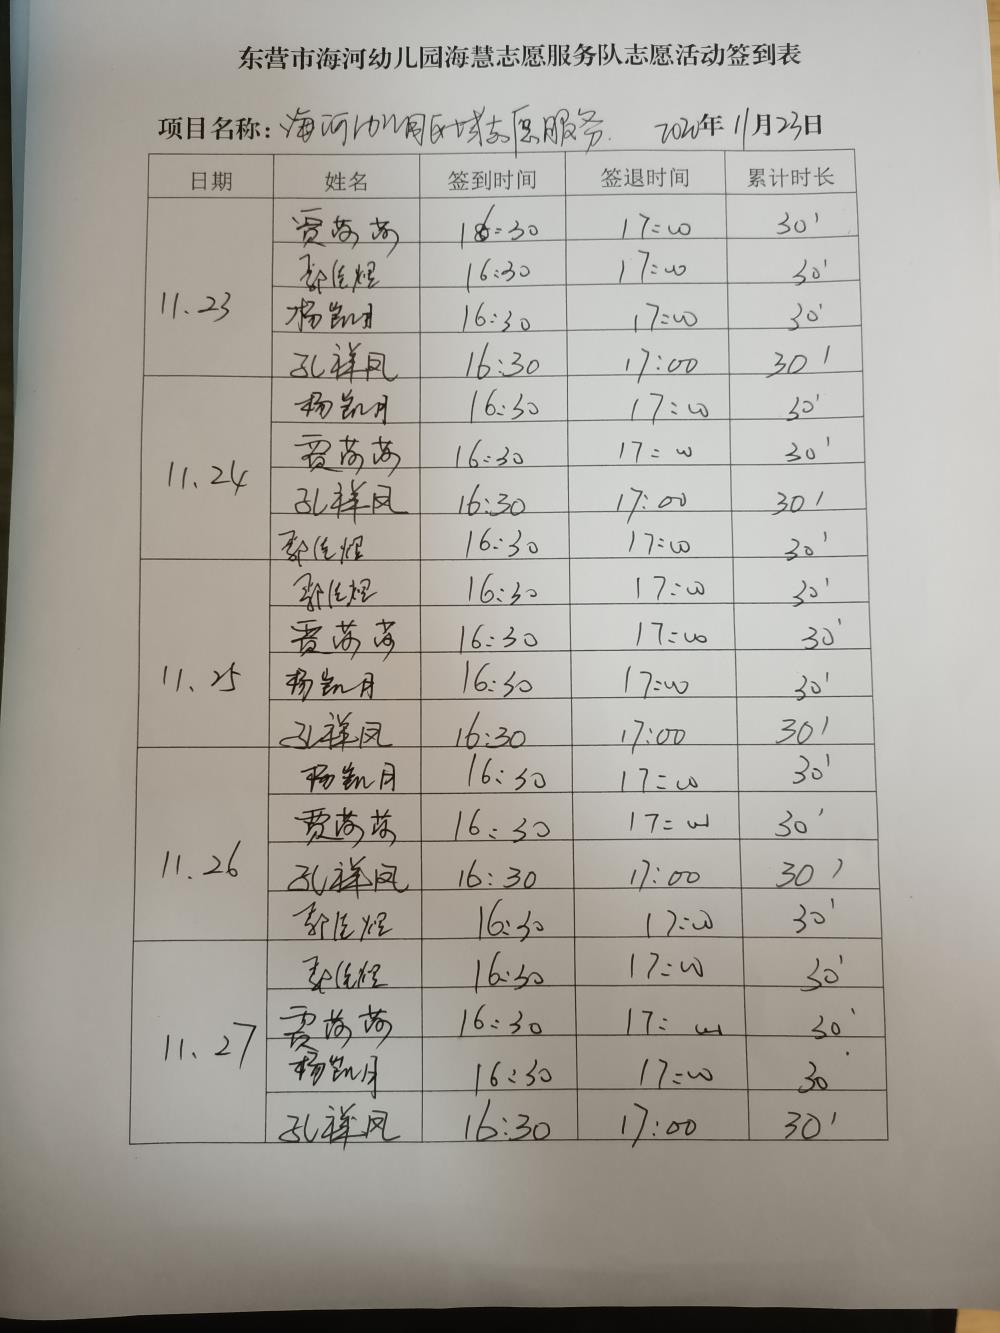 东营市海河幼儿园海慧志愿服务队志愿活动签到表
项目名称：海河幼儿园区域志愿服务. 2020年11月23日
日期 姓名 签到时间 签退时间 累计时长
11.23
贾 16:30 17:00 30'
郭佳煜 16:30 17:00 30'
杨凯月 16:30 17:00 30'
孔祥凤 16:30 17:00 30'
11.24
杨凯月 16:30 17:00 30'
贾 16:30 17:00 30'
孔祥凤 16:30 17:00 30'
郭佳煜 16:30 17:00 30'
11.25
郭佳煜 16:30 17:00 30'
贾 16:30 17:00 30'
杨凯月 16:30 17:00 30'
孔祥凤 16:30 17:00 30'
11.26
杨凯月 16:30 17:00 30'
贾 16:30 17:00 30'
孔祥凤 16:30 17:00 30'
郭佳煜 16:30 17:00 30'
11.27
郭佳煜 16:30 17:00 30'
贾 16:30 17:00 30'
杨凯月 16:30 17:00 30'
孔祥凤 16:30 17:00 30'